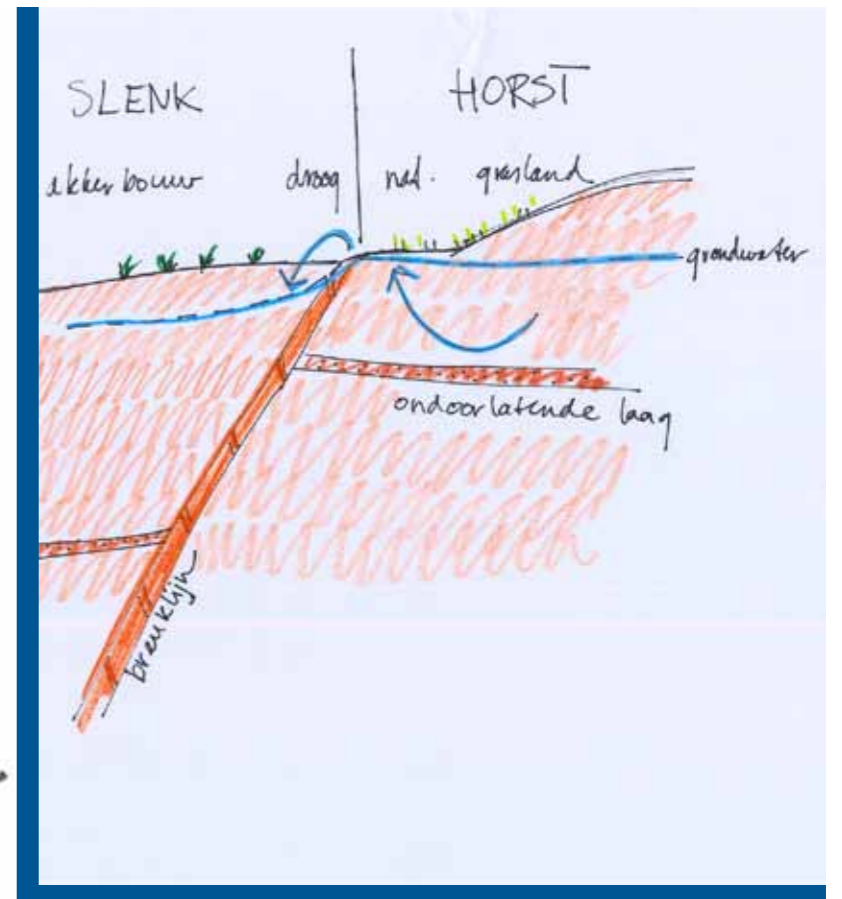 SLENK HORST
akkerbouw droog nat. grasland
grondwater
ondoorlatende laag
breuklijn